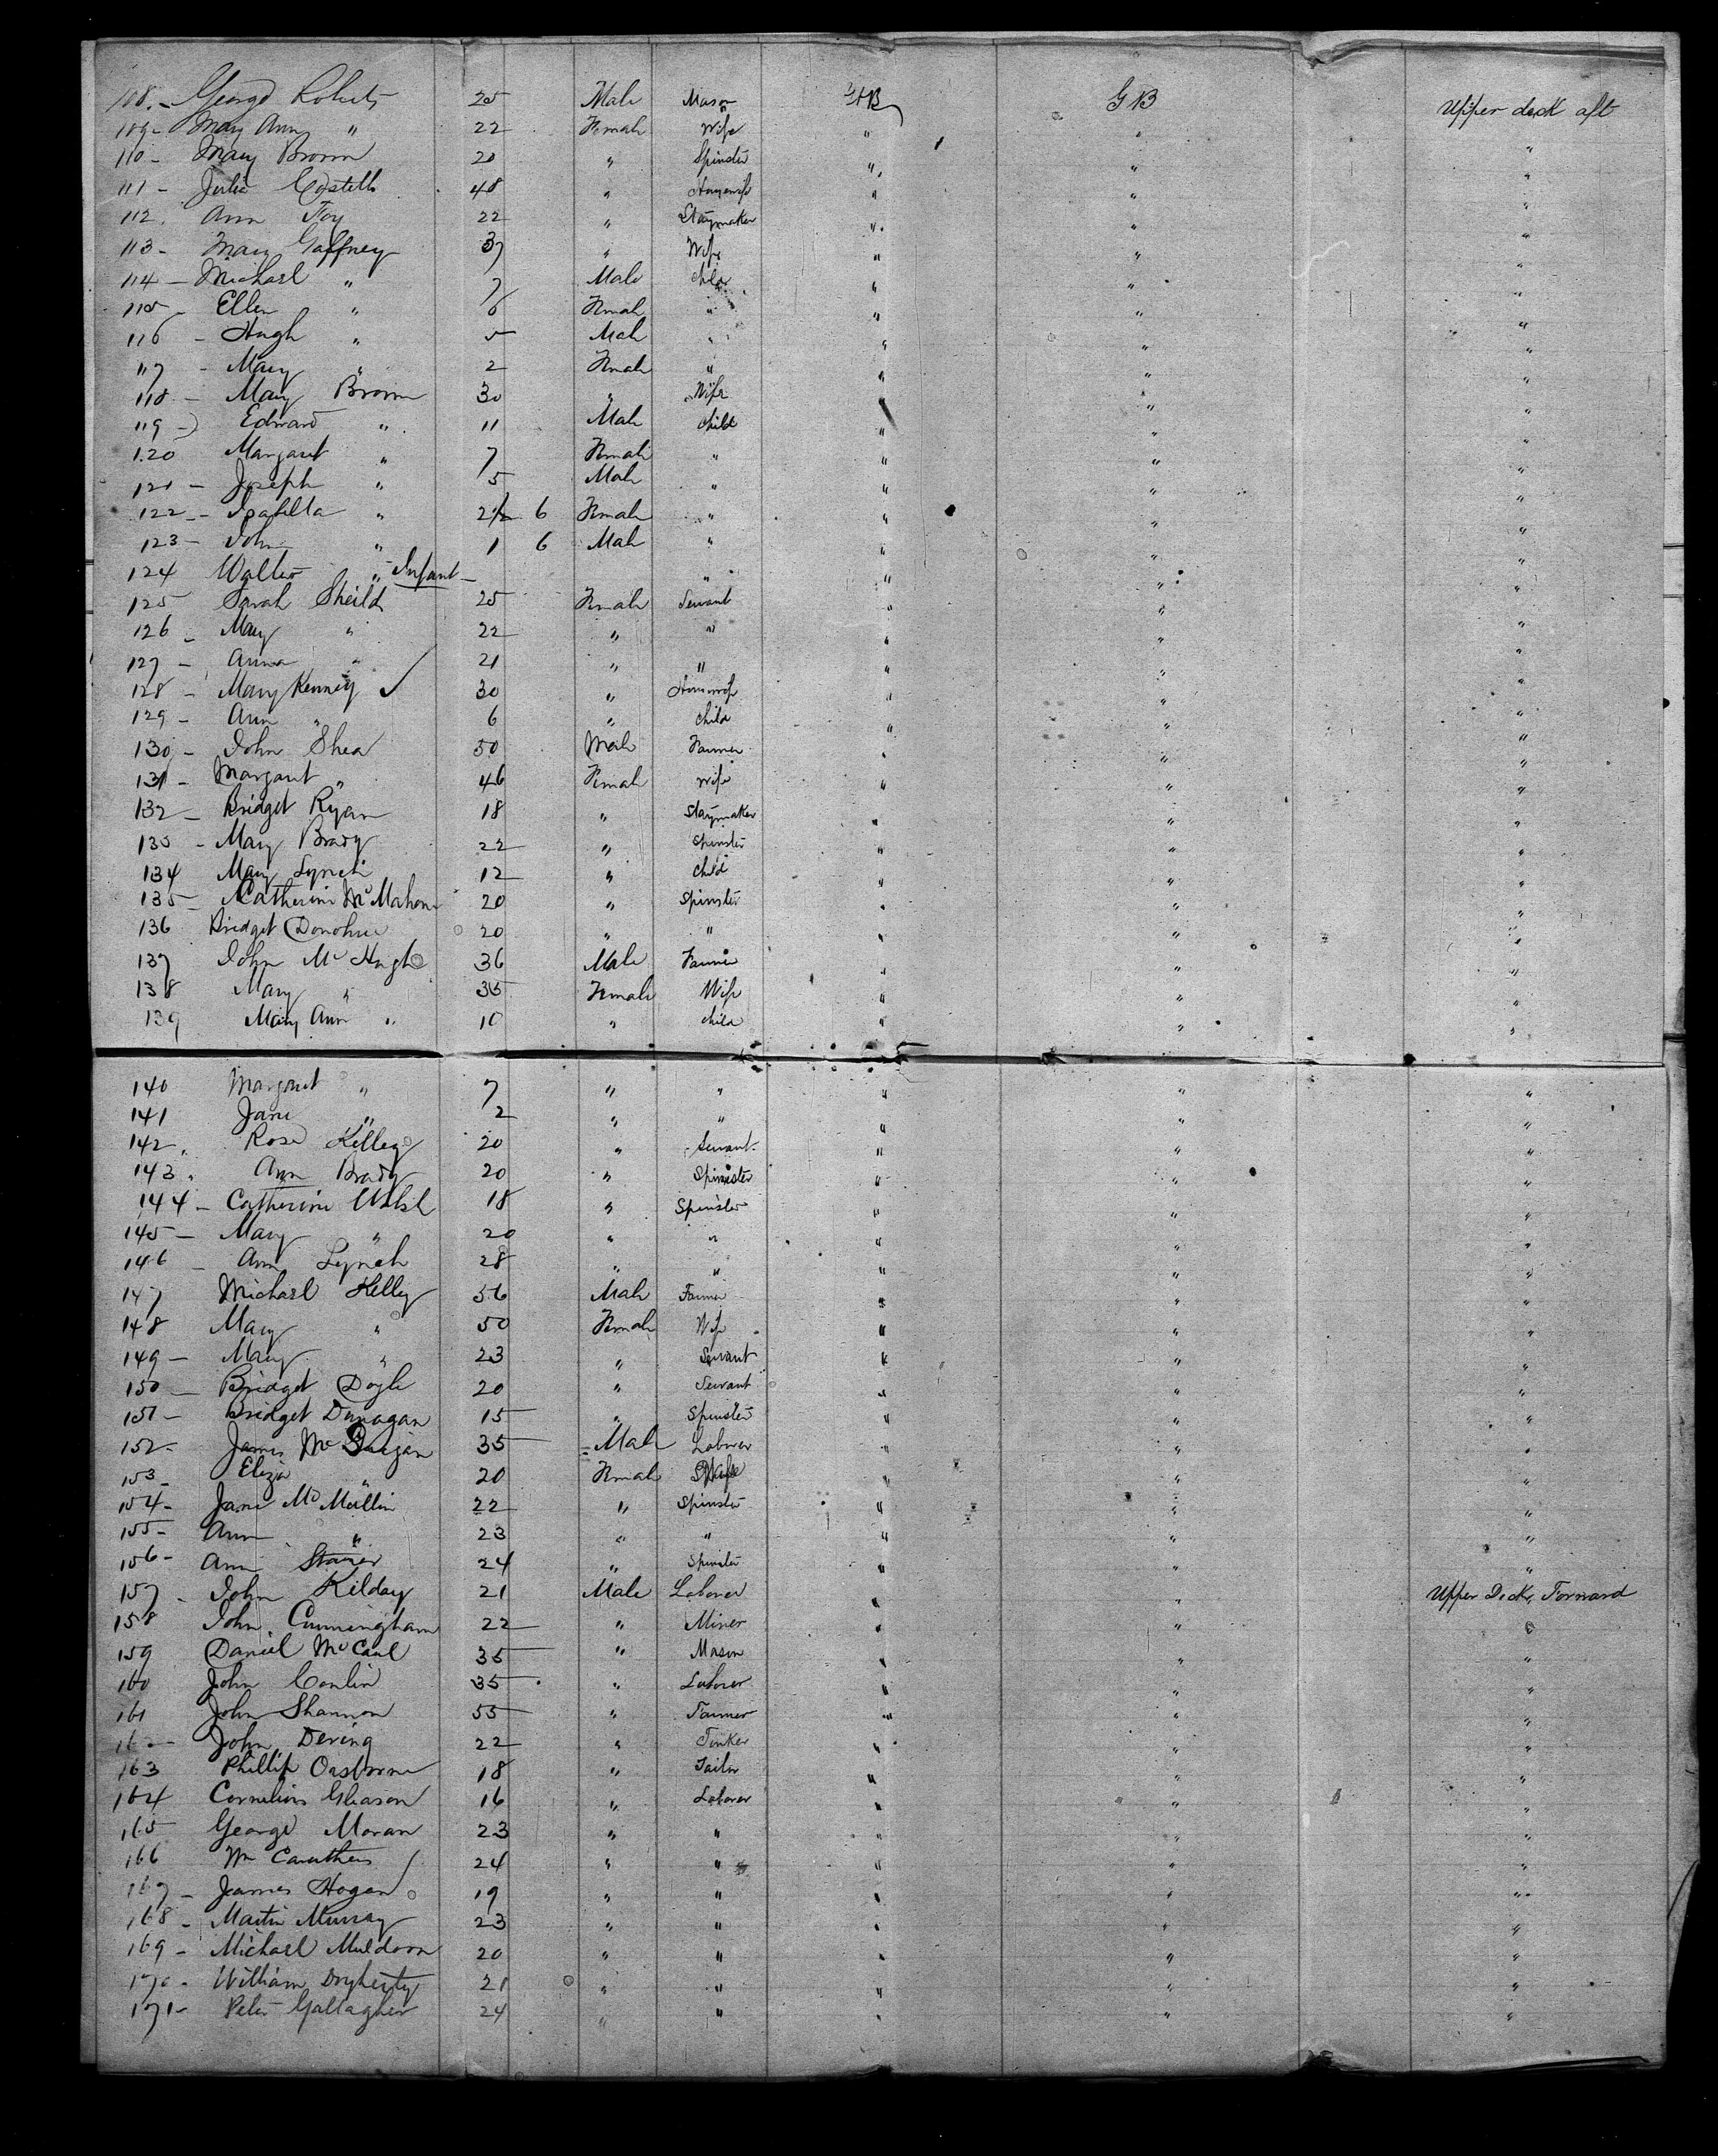 108. - George Roberts 25 Male Mason GB GB Upper deck aft
109 - Mary Ann " 22 Female Wife " " "
110 - Mary Brown 20 " Spinster " " "
111 - Julia Costello 48 " " " "
112. Ann Foy 22 " Staymaker " " "
113 - Mary Gaffney 37 " Wife " " "
114 - Michael " 7 Male Child " " "
115 - Ellen " 6 Female " " " "
116 - Hugh " 5 Male " " " "
117 - Mary " 2 Female " " " "
118 - Mary Brown 30 " Wife " " "
119 - Edward " 11 Male Child " " "
120 Margaret " 7 Female " " " "
121 - Joseph " 5 Male " " " "
122 - Isabella " 2 6 Female " " " "
123 - John " 1 6 Male " " " "
124 Walter " Infant " " " "
125 - Sarah Sheild 25 Female Servant " " "
126 - Mary " 22 " " " " "
127 - Anna " 21 " " " " "
128 - Mary Kenney ✓ 30 " " " "
129 - Ann " 6 " Child " " "
130 - John Shea 50 Male Farmer " " "
131 - Margaret " 46 Female Wife " " "
132 - Bridget Ryan 18 " Staymaker " " "
133 - Mary Brady 22 " Spinster " " "
134 Mary Lynch 12 " Child " " "
135 - Catherine McMahon 20 " Spinster " " "
136 Bridget Donohue 20 " " " " "
137 John McHugh 36 Male Farmer " " "
138 Mary " 35 Female Wife " " "
139 Mary Ann " 10 " Child " " "
140 Margaret " 7 " " " " "
141 Jane " 2 " " " " "
142. Rose Kelley 20 " Servant " " "
143. Ann Brady 20 " Spinster " " "
144 - Catherine Walsh 18 " Spinster " " "
145 - Mary " 20 " " " " "
146 - Ann Lynch 28 " " " " "
147 Michael Kelley 56 Male Farmer " " "
148 Mary " 50 Female Wife " " "
149 - Mary " 23 " Servant " " "
150 - Bridget Doyle 20 " Servant " " "
151 - Bridget Dunagan 15 " Spinster " " "
152 - James Mc 35 Male Laborer " " "
153 - Eliza " 20 Female Wife " " "
154 - Jane McMullin 22 " Spinster " " "
155 - Ann " 23 " " " " "
156 - Ann 24 " Spinster " " "
157 - John Kilday 21 Male Laborer " " Upper Deck, Forward
158 John Cunningham 22 " Miner " " "
159 Daniel McCaul 35 " Mason " " "
160 John Conlin 35 " Laborer " " "
161 John Shannon 55 " Farmer " " "
16 - John Dering 22 " Tinker " " "
163 Phillip Osborne 18 " Tailor " " "
164 Cornelius Gleason 16 " Laborer " " "
165 George Moran 23 " " " " "
166 Wm Caruthers 24 " " " " "
167 - James Hogan 19 " " " " "
168 - Martin Murray 23 " " " " "
169 - Michael Muldoon 20 " " " " "
170 - William Dogherty 21 " " " " "
171 - Peter Gallagher 24 " " " " "